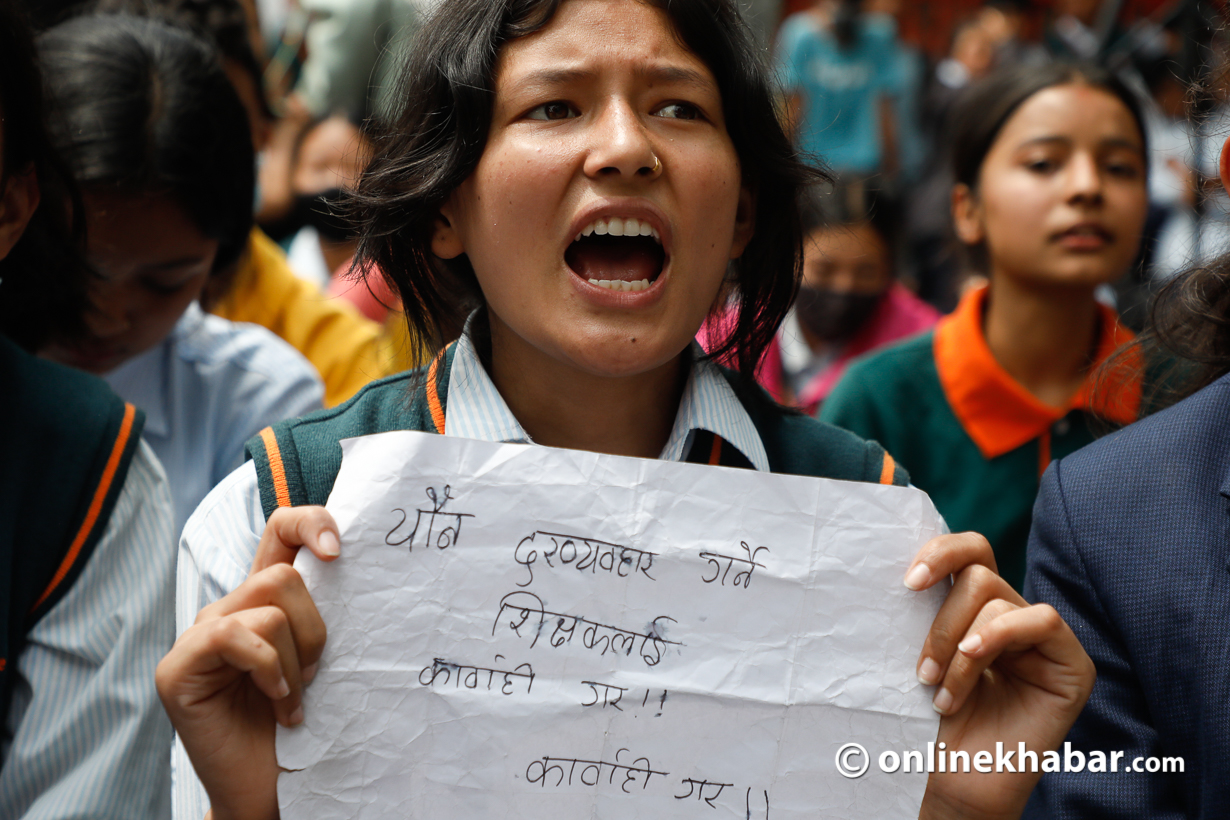 यौन दुरव्यवहार गर्ने
शिक्षकलाई
कार्वाही गर!!
कार्वाही गर!!
© onlinekhabar.com